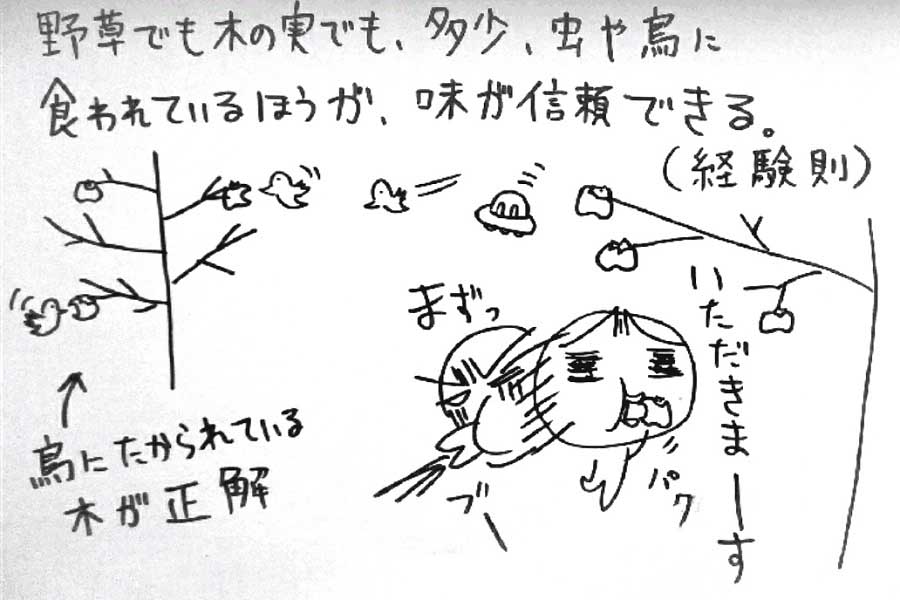 野草でも木の実でも、多少、虫や鳥に
食われているほうが、味が信頼できる。
(経験則)
いただきまーす
まずっ
パク
ブー
鳥にたかられている
木が正解